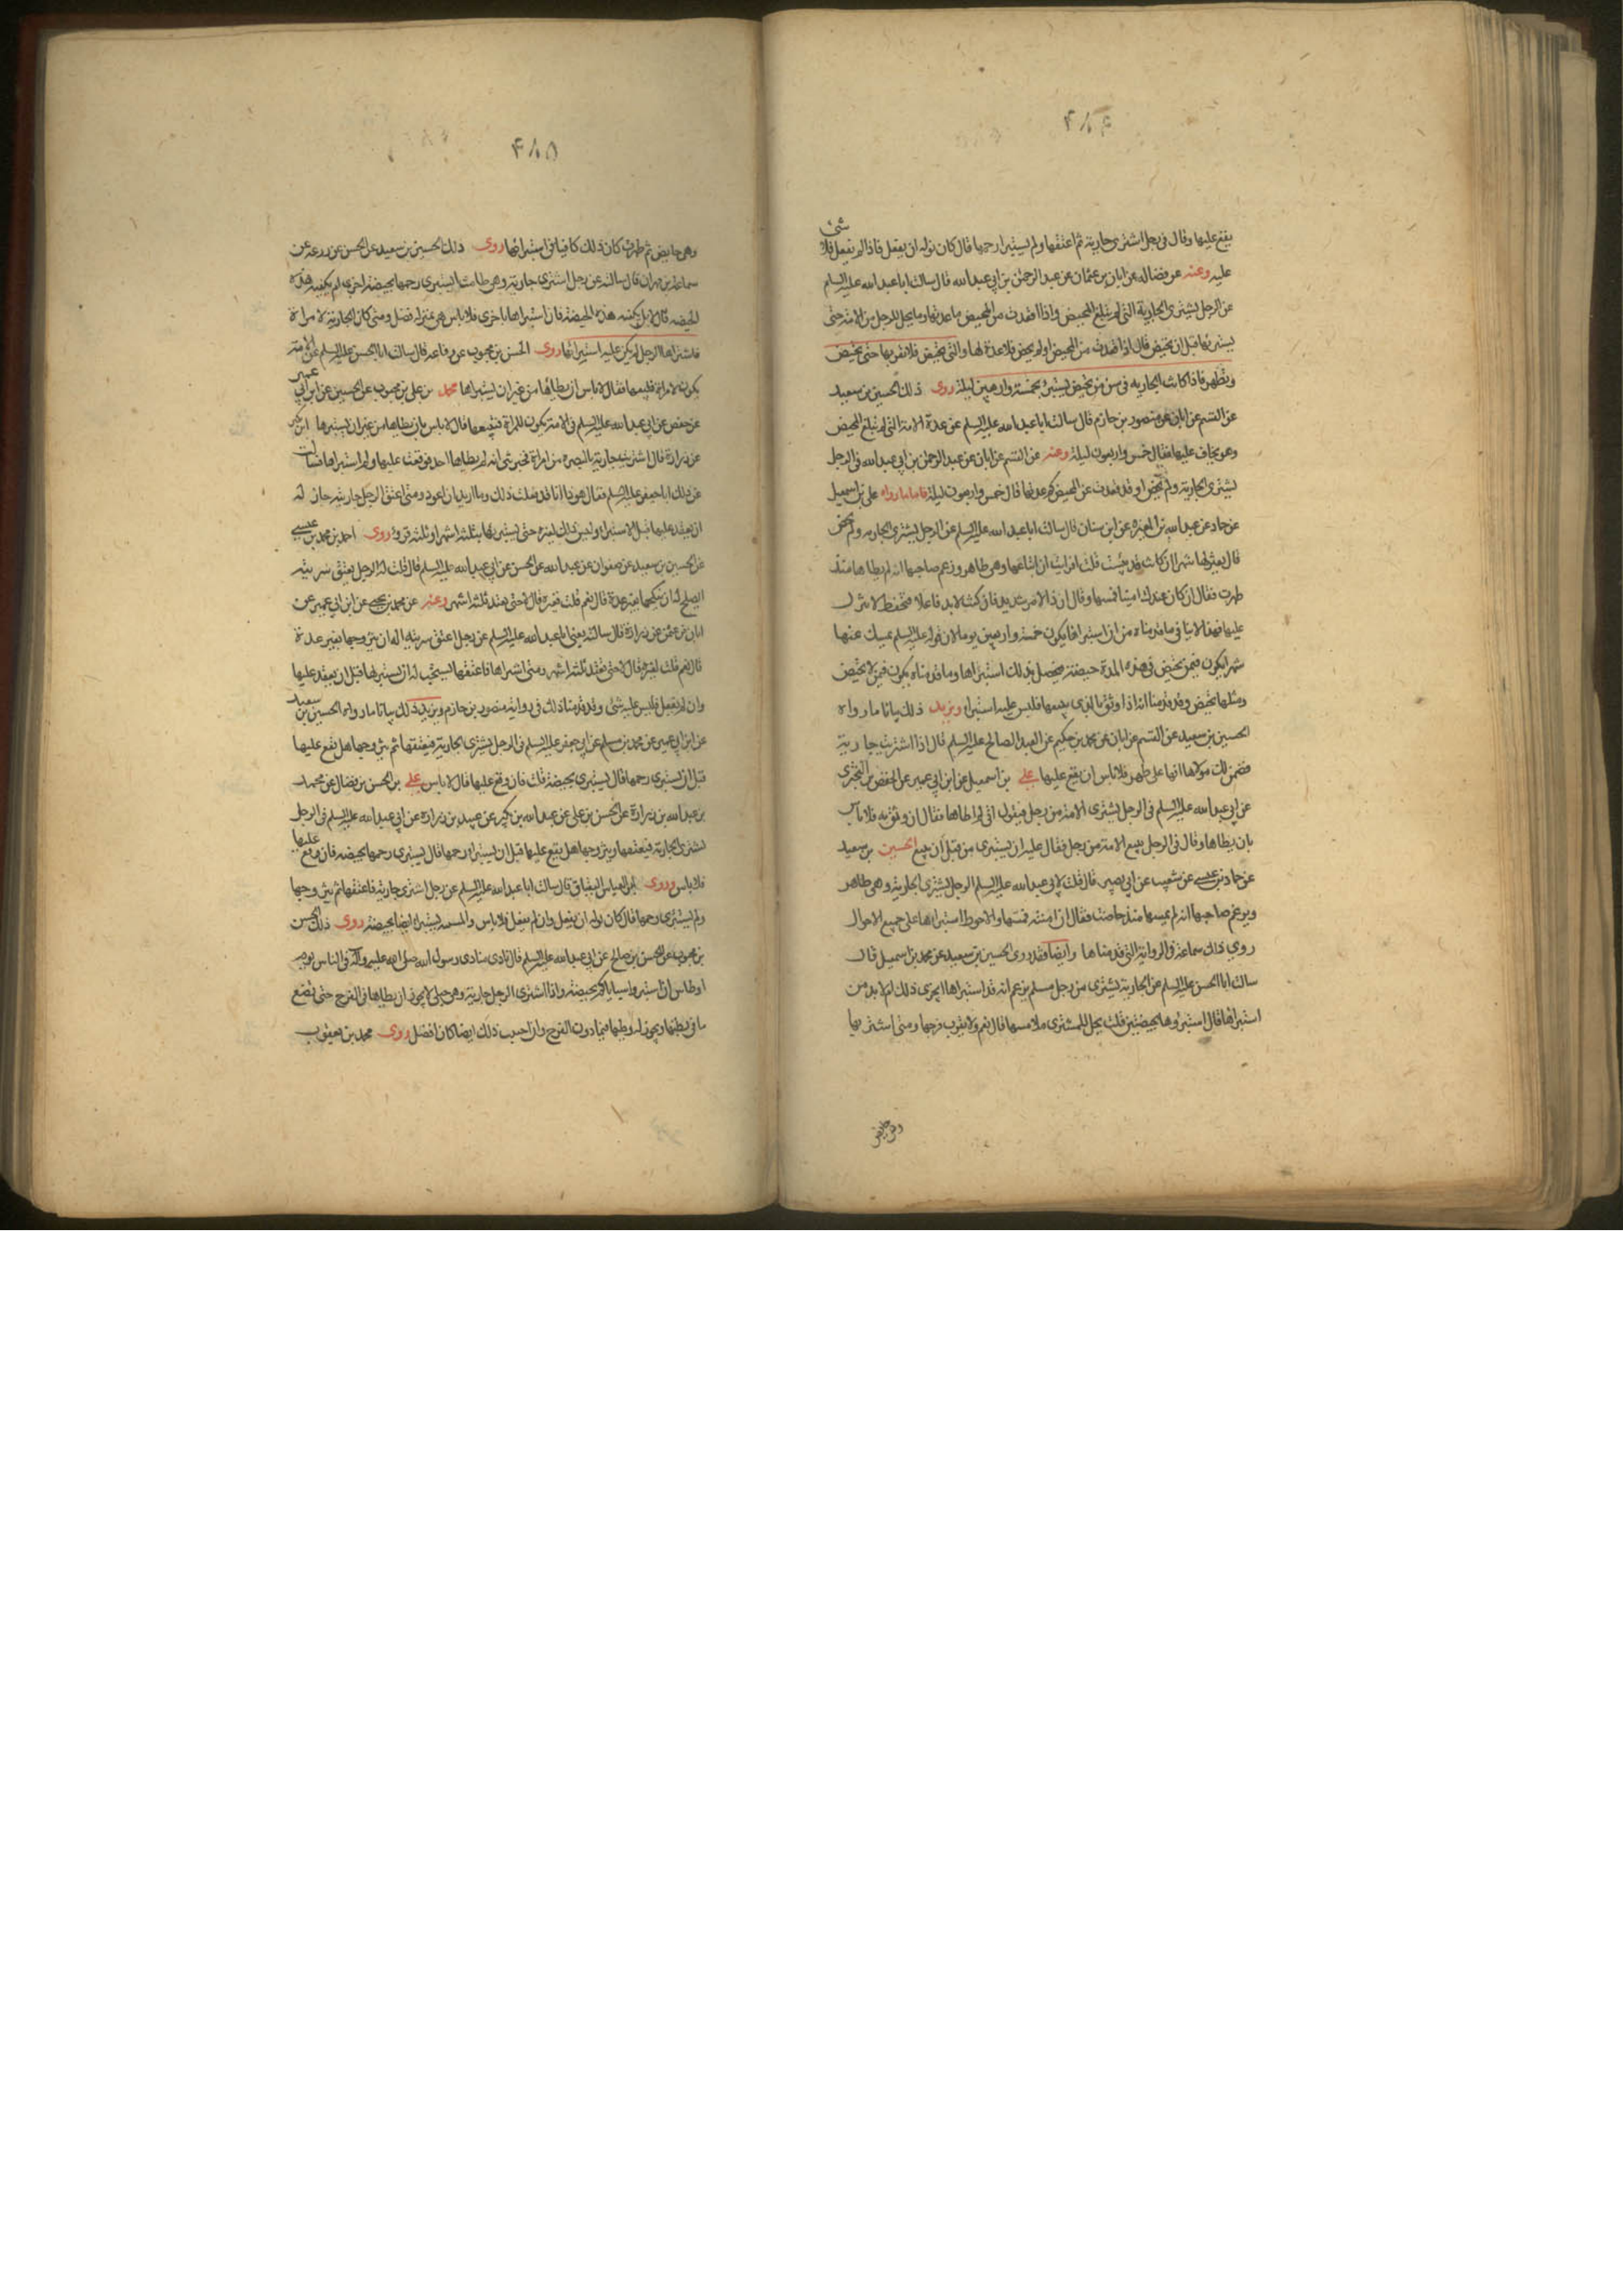 ۴۸۴
يقع عليها وقال فى رجل اشترى جارية ثم اعتقها ولم يستبرا رحمها قال كان نوله ان يفعل فاذا لم يفعل فلا شئ
عليه وعنه عن فضاله عن ابان بن عثمان عن عبد الرحمن بن ابى عبد الله قال سالت ابا عبد الله عليه السلم
عن الرجل يشترى الجارية التى لم تبلغ المحيض واذا قعدت من المحيض ما عدتها وما يحل للرجل من الامة حتى
يستبرئها قبل ان تحيض قال اذا قعدت من المحيض او لم تحض فلا عدة لها والتى تحيض فلا يقربها حتى تحيض
وتطهر فاذا كانت الجاريه فى سن من تحيض يستبرئ بخمسة واربعين ليلة روى ذلك الحسين بن سعيد
عن القسم عن ابان عن منصور بن حازم قال سالت ابا عبد الله عليه السلم عن عدة الامة التى لم تبلغ المحيض
وهو يخاف عليها فقال خمس واربعون ليلة وعنه عن القسم عن ابان عن عبد الرحمن بن ابى عبد الله فى الرجل
يشترى الجارية ولم تحض او قد قعدت عن المحيض كم عدتها قال خمس واربعون ليلة فاما ما رواه على بن اسمعيل
عن حماد عن عبد الله بن المغيره عن ابن سنان قال سالت ابا عبد الله عليه السلم عن الرجل يشترى الجاريه ولم تحض
قال يعتزلها شهرا ان كانت قد يئست قلت افرايت ان ابتاعها وهى طاهر وزعم صاحبها انه لم يطاها منذ
طهرت فقال ان كان عندك امينا فمسها وقال ان ذا الامر شديد فان كنت لا بد فاعلا فتحفظ لا تنزل
عليها فهذا لا ينافى ما قدمناه من ان استبراها يكون خمسة واربعين يوما لان قوله عليه السلم يمسك عنها
شهرا يكون فيمن تحيض فى هذه المدة حيضة فيحصل بذلك استبراها وما قدمناه يكون فيمن لا تحيض
ومثلها تحيض وقد قدمنا انه اذا وثق بالذى يبيعها فليس عليه استبراء ويزيد ذلك بيانا ما رواه
الحسين بن سعيد عن القسم عن ابان عن محمد بن حكيم عن العبد الصالح عليه السلم قال اذا اشتريت جارية
فضمن لك مولاها انها على طهر فلا باس ان يقع عليها على بن اسمعيل عن ابن ابى عمير عن حفص بن البخترى
عن ابى عبد الله عليه السلم فى الرجل يشترى الامة من رجل فيقول انى لم اطاها فقال ان وثق به فلا باس
بان يطاها وقال فى الرجل يبيع الامة من رجل فقال عليه ان يستبرى من قبل ان يبيع الحسين بن سعيد
عن حماد بن عيسى عن شعيب عن ابى بصير قال قلت لابى عبد الله عليه السلم الرجل يشترى الجارية وهى طاهر
ويزعم صاحبها انه لم يمسها منذ حاضت فقال ان امنته فمسها والاحوط استبراها على جميع الاحوال
روى ذلك سماعة فى الرواية التى قدمناها وايضا فقد روى الحسين بن سعيد عن محمد بن اسمعيل قال
سالت ابا الحسن عليه السلم عن الجارية يشترى من رجل مسلم يزعم انه قد استبراها ايجزى ذلك ام لا بد من
استبراها قال استبرؤها بحيضتين قلت يحل للمشترى ملامسها قال نعم ولا يقرب فرجها ومتى اشتريها
وهى حايض
۴۸۵
وهى حايض ثم طهرت كان ذلك كافيا فى استبرائها روى ذلك الحسين بن سعيد عن الحسن عن زرعة عن
سماعة بن مهران قال سالته عن رجل اشترى جارية وهى طامث ايستبرى رحمها بحيضة اخرى ام تكفيه هذه
الحيضه قال لا بل تكفيه هذه الحيضة فان استبراها باخرى فلا باس هى بمنزله فضل ومتى كان الجارية لامراة
فاشتراها الرجل لم يكن عليه استبرائها روى الحسن بن محبوب عن رفاعه قال سالت ابا الحسن عليه السلم عن الامة
تكون لامراة فتبيعها فقال لا باس ان يطاها من غير ان يستبراها محمد بن على بن محبوب عن الحسين عن ابن ابى عمير
عن حفص عن ابى عبد الله عليه السلم فى الامة تكون للمراة فتبيعها قال لا باس بان يطاها من غير ان يستبرها ابن بكير
عن زرارة قال اشتريت جارية بالبصره من امراة فخبرتنى انه لم يطاها احد فوقعت عليها ولم استبراها فسالت
عن ذلك ابا جعفر عليه السلم فقال هوذا انا قد فعلت ذلك وما اريد ان اعود ومتى اعتق الرجل جاريته جاز له
ان يعقد عليها قبل الاستبراء وليس ذلك لغيره حتى يستبريها بثلثة اشهر او ثلثة قروء روى احمد بن محمد بن عيسى
عن الحسين بن سعيد عن صفوان عن عبد الله عن الحسن عن ابى عبد الله عليه السلم قال قلت له الرجل يعتق سريته
ايصلح له ان ينكحها بغير عدة قال نعم قلت فغيره قال لا حتى تعتد ثلثة اشهر وعنه عن محمد بن يحيى عن ابن ابى عمير عن
ابان بن عثمن عن زرارة قال سالته يعنى ابا عبد الله عليه السلم عن رجل اعتق سريته اله ان يتزوجها بغير عدة
قال نعم قلت لغيره قال لا حتى تعتد ثلثة اشهر ومتى اشتراها فاعتقها يستحب له ان يستبرها قبل ان يعقد عليها
وان لم يفعل فليس عليه شئ وقد قدمنا ذلك فى رواية منصور بن حازم ويزيد ذلك بيانا ما رواه الحسين بن سعيد
عن ابن ابى عمير عن محمد بن مسلم عن ابى جعفر عليه السلم فى الرجل يشترى الجارية فيعتقها ثم يتزوجها هل يقع عليها
قبل ان يستبرى رحمها قال يستبرى بحيضة قلت فان وقع عليها قال لا باس على بن الحسن بن فضال عن محمد
بن عبد الله بن زرارة عن الحسن بن على عن عبد الله بن بكير عن عبيد بن زرارة عن ابى عبد الله عليه السلم فى الرجل
يشترى الجارية فيعتقها ويتزوجها هل يقع عليها قبل ان يستبرا رحمها قال يستبرى رحمها بحيضه فان وقع عليها
فلا باس وروى ابو العباس البقباق قال سالت ابا عبد الله عليه السلم عن رجل اشترى جارية فاعتقها ثم يتزوجها
ولم يستبرى رحمها قال كان نوله ان يفعل وان لم يفعل فلا باس والمسبيه يستبراء ايضا بحيضة روى ذلك الحسن
بن محبوب عن الحسن بن صالح عن ابى عبد الله عليه السلم قال نادى منادى رسول الله صلى الله عليه وآله فى الناس يوم
اوطاس ان استبروا سباياكم بحيضة واذا اشترى الرجل جارية وهى حبلى لا يجوز ان يطاها فى الفرج حتى تضع
ما فى بطنها ويجوز له وطيها فيما دون الفرج وان اجتنب ذلك ايضا كان افضل روى محمد بن يعقوب